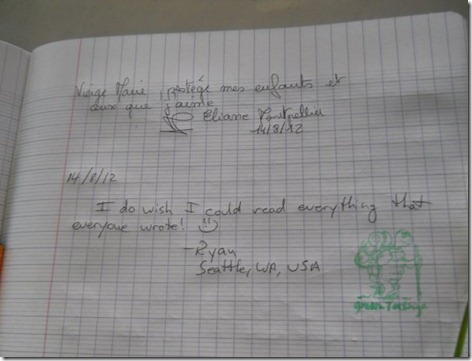 Vierge Marie, protège mes enfants et
ceux que j'aime
Eliane Montpellier
14/8/12
14/8/12
I do wish I could read everything that
everyone wrote!
- Ryan
Seattle, WA, USA